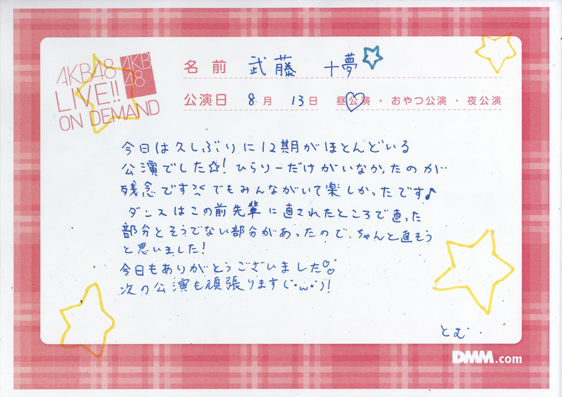 AKB48
LIVE!!
ON DEMAND
AKB
48
名前 武藤 十夢
公演日 8月 13日 昼公演・おやつ公演・夜公演
今日は久しぶりに12期がほとんどいる
公演でした☆!ひらりーだけがいなかったのが
残念です でもみんながいて楽しかったです♪
ダンスはこの前先輩に直されたところで直った
部分とそうでない部分があったので、ちゃんと直そう
と思いました!
今日もありがとうございました
次の公演も頑張ります(´・ω・`)!
とむ
DMM.com